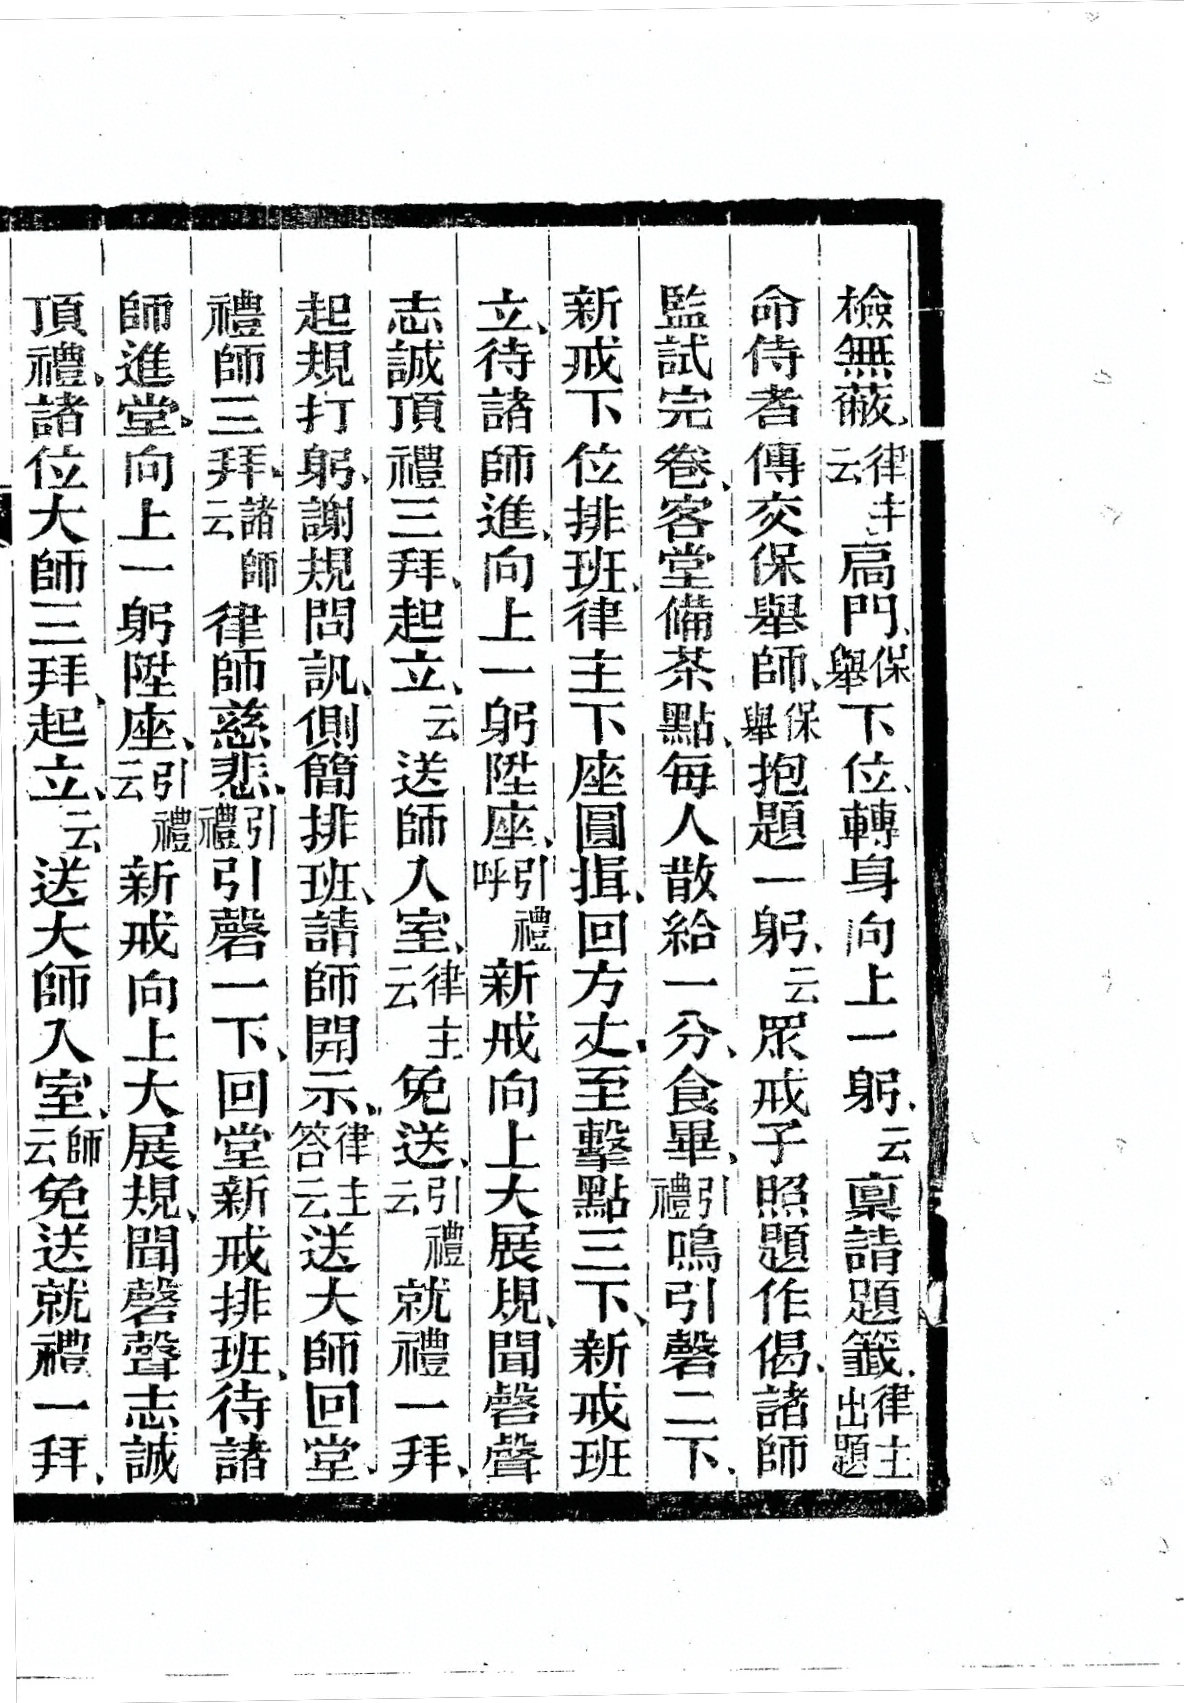 檢無蔽、律主云高門、保舉下位、轉身向上一躬、云稟請題籤、律主出題
命侍者傳交保舉師、保舉抱題一躬、云眾戒子照題作偈、諸師
監試完卷、客堂備茶點、每人散給一分、食畢、引禮鳴引磬二下、
新戒下位排班、律主下座圓揖、回方丈、至擊點三下、新戒班
立、待諸師進、向上一躬陞座、引禮呼新戒向上大展規、聞磬聲
志誠頂禮三拜、起立、云送師入室、律主云免送、引禮云就禮一拜、
起規打躬、謝規問訊、側簡排班、請師開示、律主答云送大師回堂、
禮師三拜、諸師云律師慈悲、引禮引磬一下、回堂新戒排班、待諸
師進堂、向上一躬陞座、引禮云新戒向上大展規、聞磬聲志誠
頂禮、諸位大師三拜、起立、云送大師入室、師云免送就禮一拜、